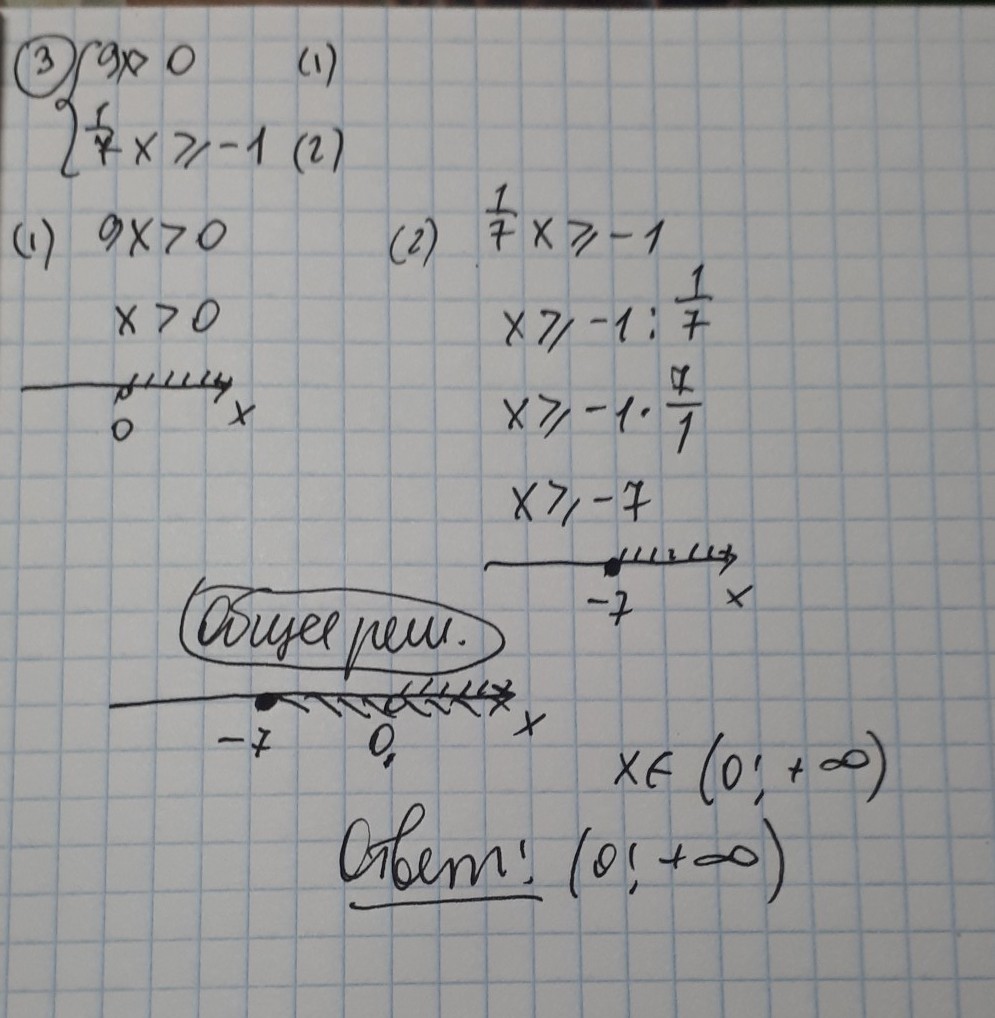 ③ { 9x > 0 (1)
1/7 x ⩾ -1 (2)
(1) 9x > 0
x > 0
0 x
(2) 1/7 x ⩾ -1
x ⩾ -1 : 1/7
x ⩾ -1 · 7/1
x ⩾ -7
-7 x
Общее реш.
-7 0 x
x ∈ (0; +∞)
Ответ: (0; +∞)